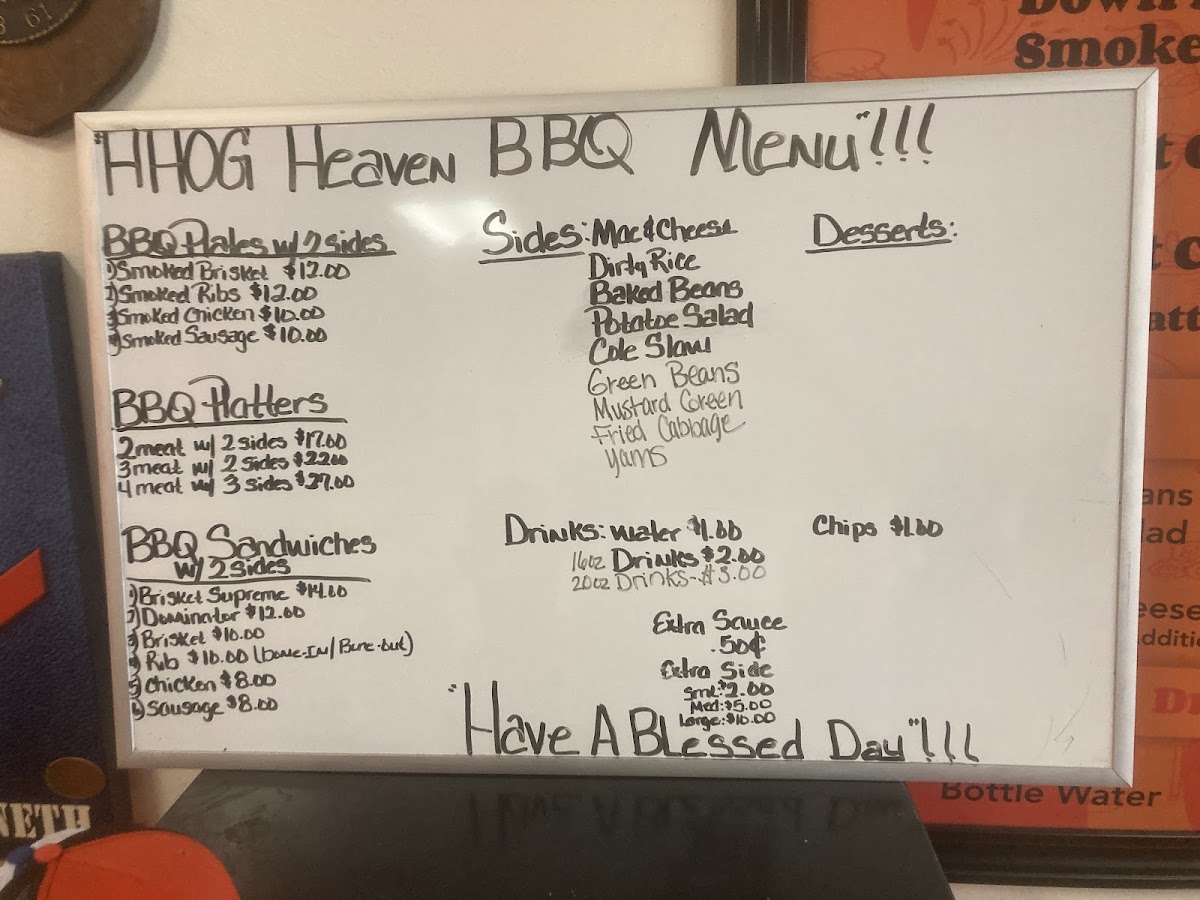 "HHOG Heaven BBQ Menu"!!!
BBQ Plates w/ 2 sides
1) Smoked Brisket $12.00
2) Smoked Ribs $12.00
3) Smoked Chicken $10.00
4) Smoked Sausage $10.00
BBQ Platters
2 meat w/ 2 sides $17.00
3 meat w/ 2 Sides $22.00
4 meat w/ 3 sides $27.00
BBQ Sandwiches
w/ 2 sides
1) Brisket Supreme $14.00
2) Dominator $12.00
3) Brisket $10.00
4) Rib $10.00 (bone-In/Bone-out)
5) Chicken $8.00
6) Sausage $8.00
Sides: Mac & Cheese
Dirty Rice
Baked Beans
Potatoe Salad
Cole Slaw
Green Beans
Mustard Green
Fried Cabbage
Yams
Desserts:
Drinks: Water $1.00
16oz Drinks $2.00
20oz Drinks - $3.00
Chips $1.00
Extra Sauce
.50¢
Extra Side
Sml: $2.00
Med: $5.00
Large: $10.00
"Have A Blessed Day"!!!
Smoke
Bottle Water
61
NETH